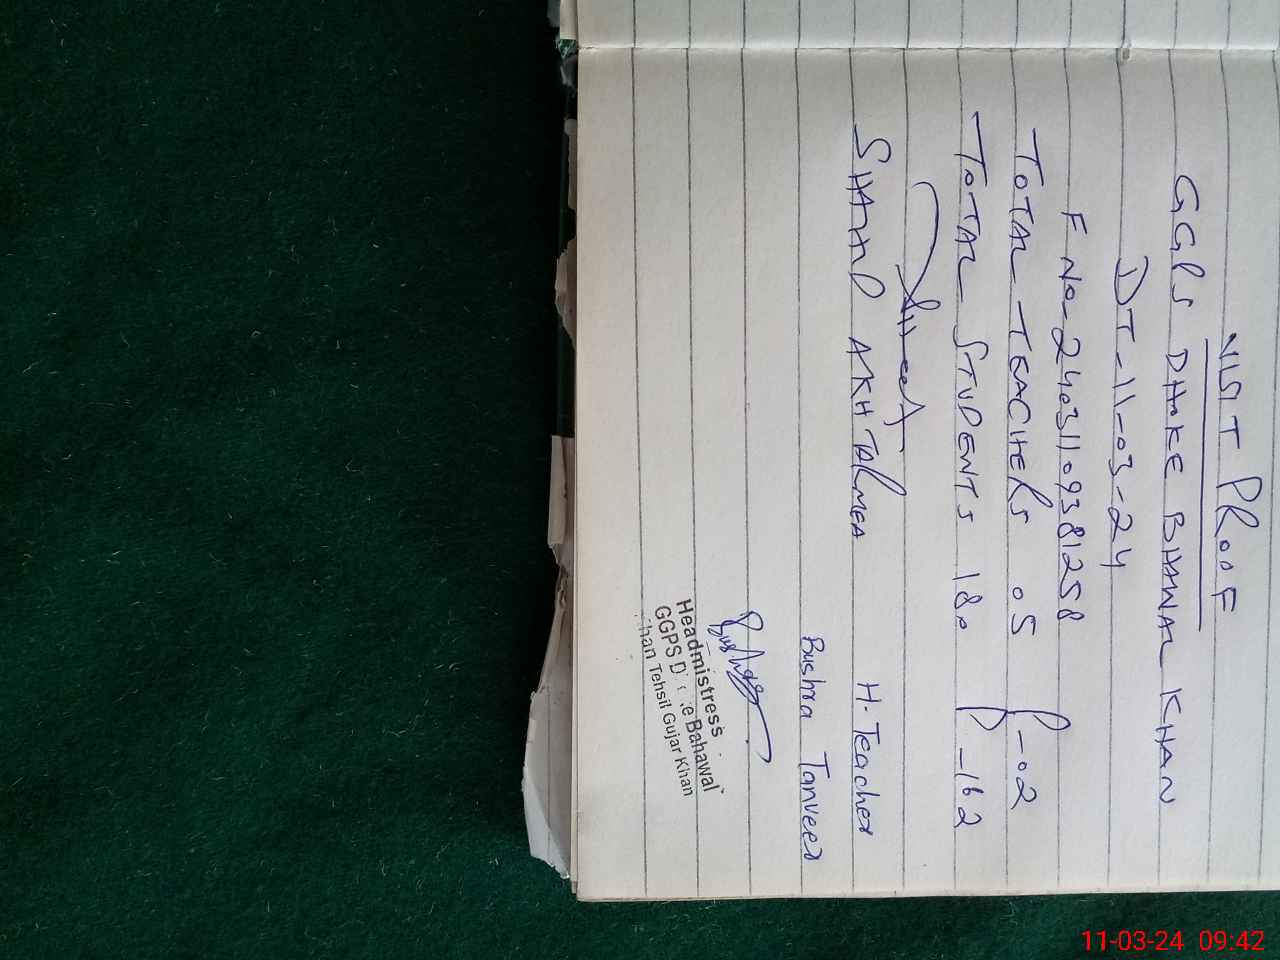 VISIT PROOF
GGPS DHOKE BHAWAL KHAN
DT-11-03-24
F No-24031109381258
TOTAL TEACHERS 05 P-02
TOTAL STUDENTS 180 P-162
SHAHID AKHTAR MEA
H-Teacher
Bushra Tanveer
Headmistress
GGPS Bahawal
Khan Tehsil Gujar Khan
11-03-24 09:42